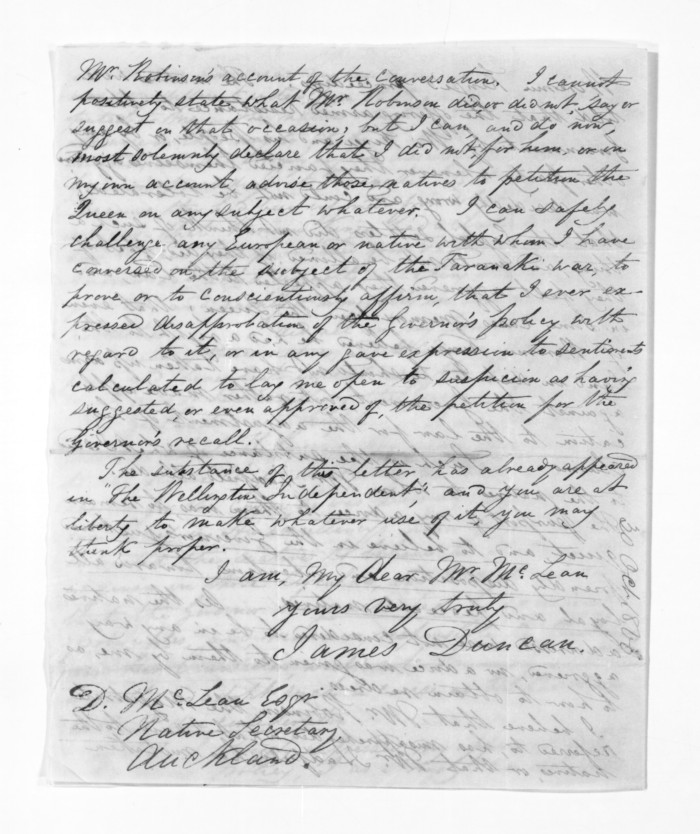 Mr. Robinson's account of the conversation. I cannot
positively state what Mr. Robinson did or did not say or
suggest on that occasion; but I can, and do now,
most solemnly declare that I did not, for him or on
my own account, advise those natives to petition the
Queen on any subject whatever. I can safely
challenge any European or native with whom I have
conversed on the subject of the Taranaki war, to
prove or to conscientiously affirm, that I ever ex-
pressed disapprobation of the Governor's policy with
regard to it, or in any gave expression to sentiments
calculated to lay me open to suspicion as having
suggested, or even approved of, the petition for the
Governor's recall.
The substance of this letter has already appeared
in The Wellington Independent, and you are at
liberty to make whatever use of it, you may
think proper.
I am, My Dear Mr. Mc.Lean
yours very truly
James Duncan.
D. Mc.Lean Esqr.
Native Secretary
Auckland.